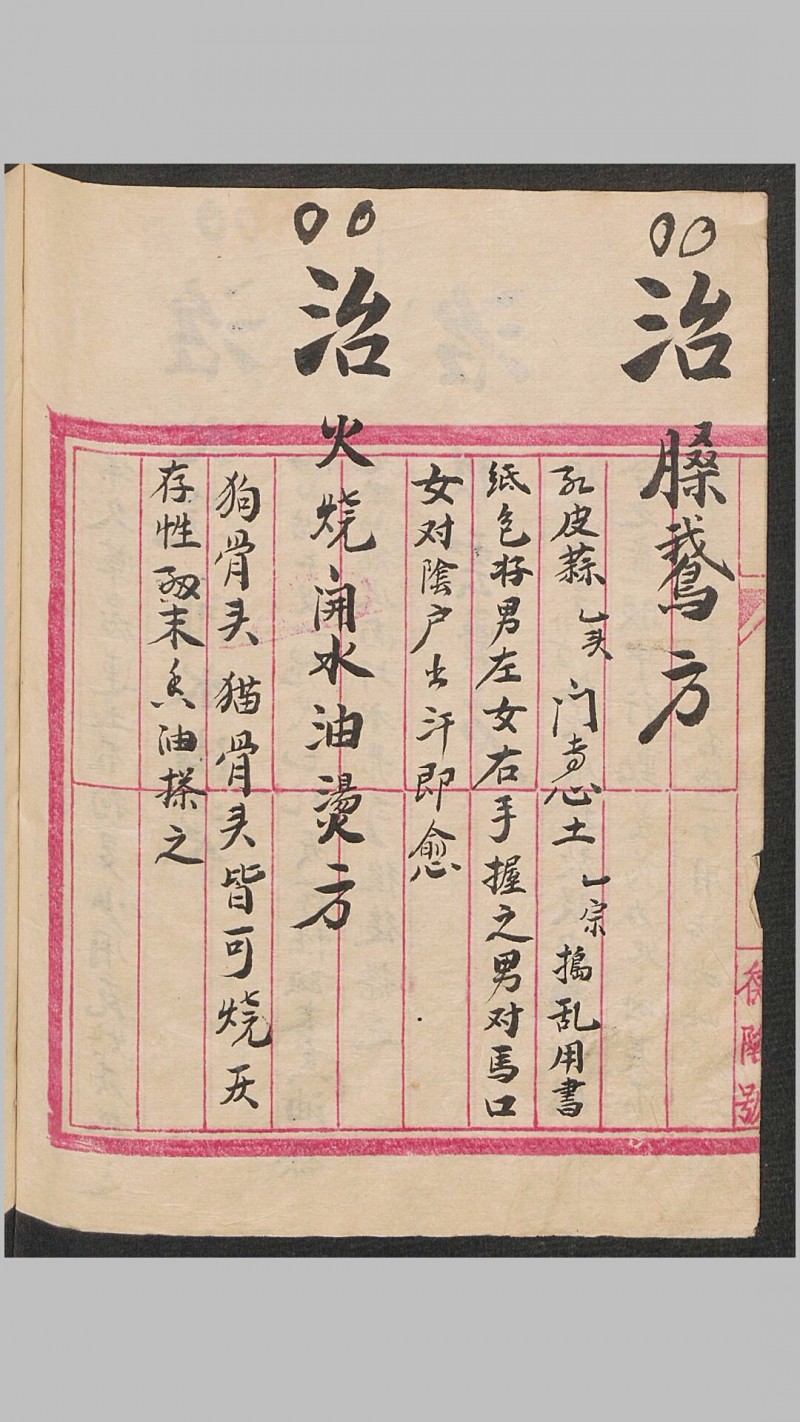 治鵝方
红皮蒜一头 门心土一宗 搗乱用書
纸包好男左女右手握之男对馬口
女对陰户出汗即愈
治火烧開水油燙方
狗骨头猫骨头皆可烧灰
存性末香油搽之